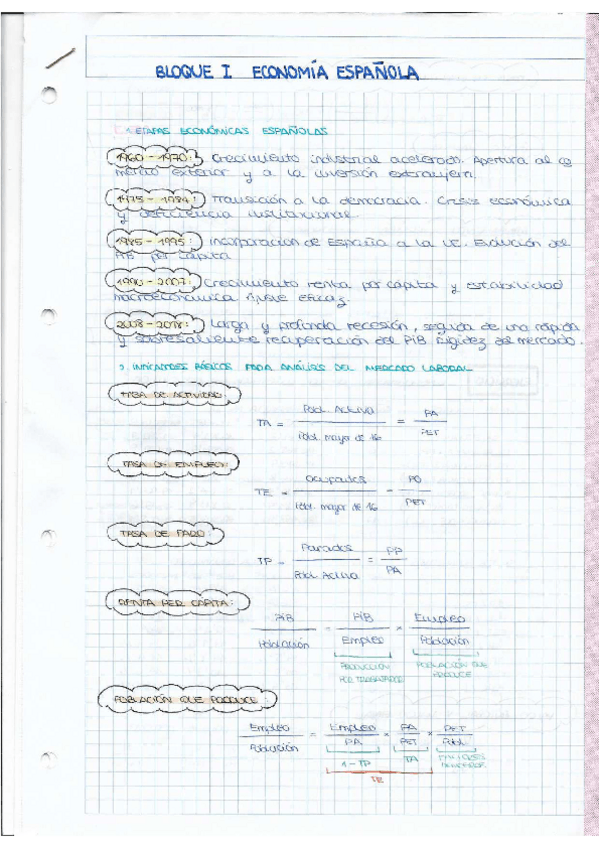 BLOQUE I ECONOMÍA ESPAÑOLA
1. ETAPAS ECONÓMICAS ESPAÑOLAS
1960 - 1970: Crecimiento industrial acelerado. Apertura al co
mercio exterior y a la inversión extranjera.
1975 - 1984: Transición a la democracia. Crisis económica
y deficiencia institucional.
1985 - 1995: Incorporación de España a la UE. Evolución del
PIB per cápita
1990 - 2007: Crecimiento renta per cápita y estabilidad
macroeconómica eficaz.
2008 - 2018: Larga y profunda recesión, seguida de una rápida
y sobresaliente recuperación del PIB. Rigidez del mercado.
2. INDICADORES BÁSICOS PARA ANÁLISIS DEL MERCADO LABORAL
TASA DE ACTIVIDAD:
TA = Pobl. Activa / Pobl. mayor de 16 = PA / PET
TASA DE EMPLEO:
TE = Ocupados / Pobl. mayor de 16 = PO / PET
TASA DE PARO:
TP = Parados / Pobl. Activa = PP / PA
RENTA PER CÁPITA:
PIB / Población = PIB / Empleo × Empleo / Población
PRODUCCIÓN POR TRABAJADOR
POBLACIÓN QUE PRODUCE
POBLACIÓN QUE PRODUCE:
Empleo / Población = Empleo / PA × PA / PET × PET / Pobl.
1 - TP
TA
TE